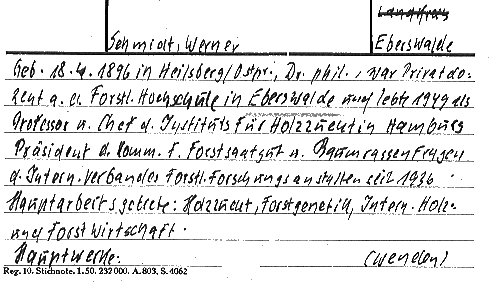 Landkreis
Schmidt, Werner Eberswalde
Geb. 18.4.1896 in Heilsberg/Ostpr., Dr. phil., war Privatdo-
zent a. d. Forstl. Hochschule in Eberswalde und lebte 1949 als
Professor u. Chef d. Instituts für Holzzucht in Hamburg
Präsident d. Komm. f. Forstsaatgut u. Baumrassenfragen
d. Intern. Verbandes Forstl. Forschungsanstalten seit 1936
Hauptarbeitsgebiete: Holzzucht, Forstgenetik, Intern. Holz-
und Forstwirtschaft.
Hauptwerke: (wenden)
Reg. 10. Stichnote. 1. 50. 232000. A. 803, S. 4062